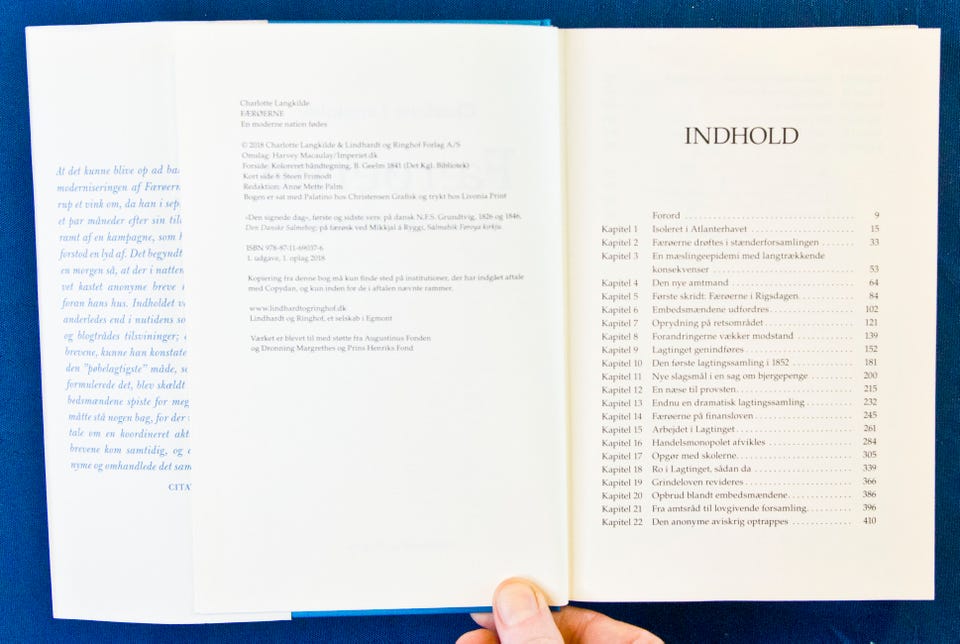 At det kunne blive op ad
moderniseringen af Færøern
rup et vink om, da han i sep
et par måneder efter sin
ramt af en kampagne, som
forstod en lyd af. Det begyndt
en morgen så, at der i natten
vet kastet anonyme breve i
foran hans hus. Indholdet
anderledes end i nutidens
og blogtrådes tilsvininger;
brevene, kunne han konstate
den "pøbelagtigste" måde,
formulerede det, blev skældt
bedsmændene spiste for meg
måtte stå nogen bag, for der
tale om en koordineret akt
brevene kom samtidig, og
nyme og omhandlede det sam
CITA
Charlotte Langkilde
FÆRØERNE
En moderne nation fødes
© 2018 Charlotte Langkilde & Lindhardt og Ringhof Forlag A/S
Omslag: Harvey Macaulay/Imperiet.dk
Forside: Koloreret håndtegning, B. Geelm 1841 (Det Kgl. Bibliotek)
Kort side 8: Steen Frimodt
Redaktion: Anne Mette Palm
Bogen er sat med Palatino hos Christensen Grafisk og trykt hos Livonia Print
»Den signede dag«, første og sidste vers: på dansk N.F.S. Grundtvig, 1826 og 1846,
Den Danske Salmebog; på færøsk ved Mikkjal á Ryggi, Sálmabók Føroya kirkju.
ISBN 978-87-11-69037-6
1. udgave, 1. oplag 2018
Kopiering fra denne bog må kun finde sted på institutioner, der har indgået aftale
med Copydan, og kun inden for de i aftalen nævnte rammer.
www.lindhardtogringhof.dk
Lindhardt og Ringhof, et selskab i Egmont
Værket er blevet til med støtte fra Augustinus Fonden
og Dronning Margrethes og Prins Henriks Fond
INDHOLD
Forord . . . . . . . . . . 9
Kapitel 1 Isoleret i Atlanterhavet . . . . . . . . . . 15
Kapitel 2 Færøerne drøftes i stænderforsamlingen . . . . . . . 33
Kapitel 3 En mæslingeepidemi med langtrækkende
konsekvenser . . . . . . . . . . 53
Kapitel 4 Den nye amtmand . . . . . . . . . . 64
Kapitel 5 Første skridt: Færøerne i Rigsdagen . . . . . . . . . . 84
Kapitel 6 Embedsmændene udfordres . . . . . . . . . . 102
Kapitel 7 Oprydning på retsområdet . . . . . . . . . . 121
Kapitel 8 Forandringerne vækker modstand . . . . . . . . . . 139
Kapitel 9 Lagtinget genindføres . . . . . . . . . . 152
Kapitel 10 Den første lagtingssamling i 1852 . . . . . . . . . . 181
Kapitel 11 Nye slagsmål i en sag om bjergepenge . . . . . . . . 200
Kapitel 12 En næse til provsten . . . . . . . . . . 215
Kapitel 13 Endnu en dramatisk lagtingssamling . . . . . . . . . . 232
Kapitel 14 Færøerne på finansloven . . . . . . . . . . 245
Kapitel 15 Arbejdet i Lagtinget . . . . . . . . . . 261
Kapitel 16 Handelsmonopolet afvikles . . . . . . . . . . 284
Kapitel 17 Opgør med skolerne . . . . . . . . . . 305
Kapitel 18 Ro i Lagtinget, sådan da . . . . . . . . . . 339
Kapitel 19 Grindeloven revideres . . . . . . . . . . 366
Kapitel 20 Opbrud blandt embedsmændene . . . . . . . . . . 386
Kapitel 21 Fra amtsråd til lovgivende forsamling . . . . . . . . 396
Kapitel 22 Den anonyme aviskrig optrappes . . . . . . . . . . 410